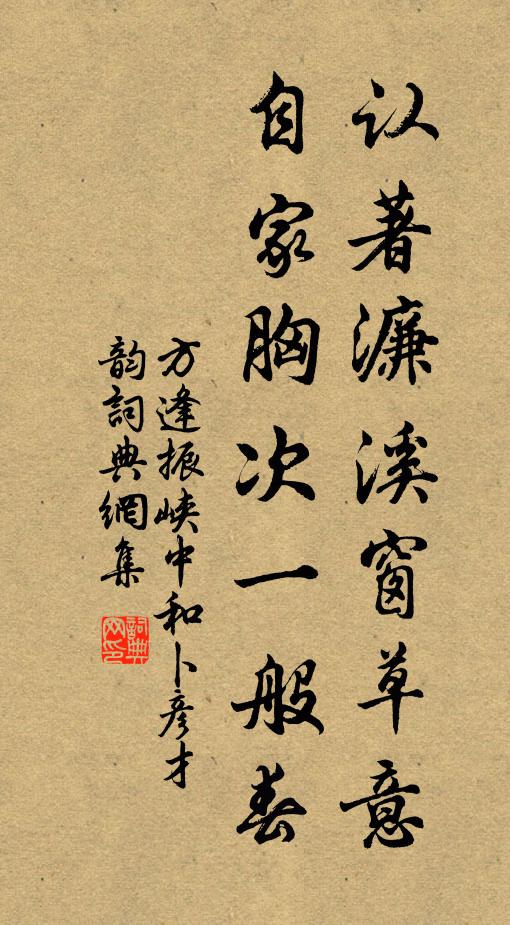 认著濂溪窗草意
自家胸次一般春
方逢振峡中和卜彦才
韵詞典網集
詞典网印